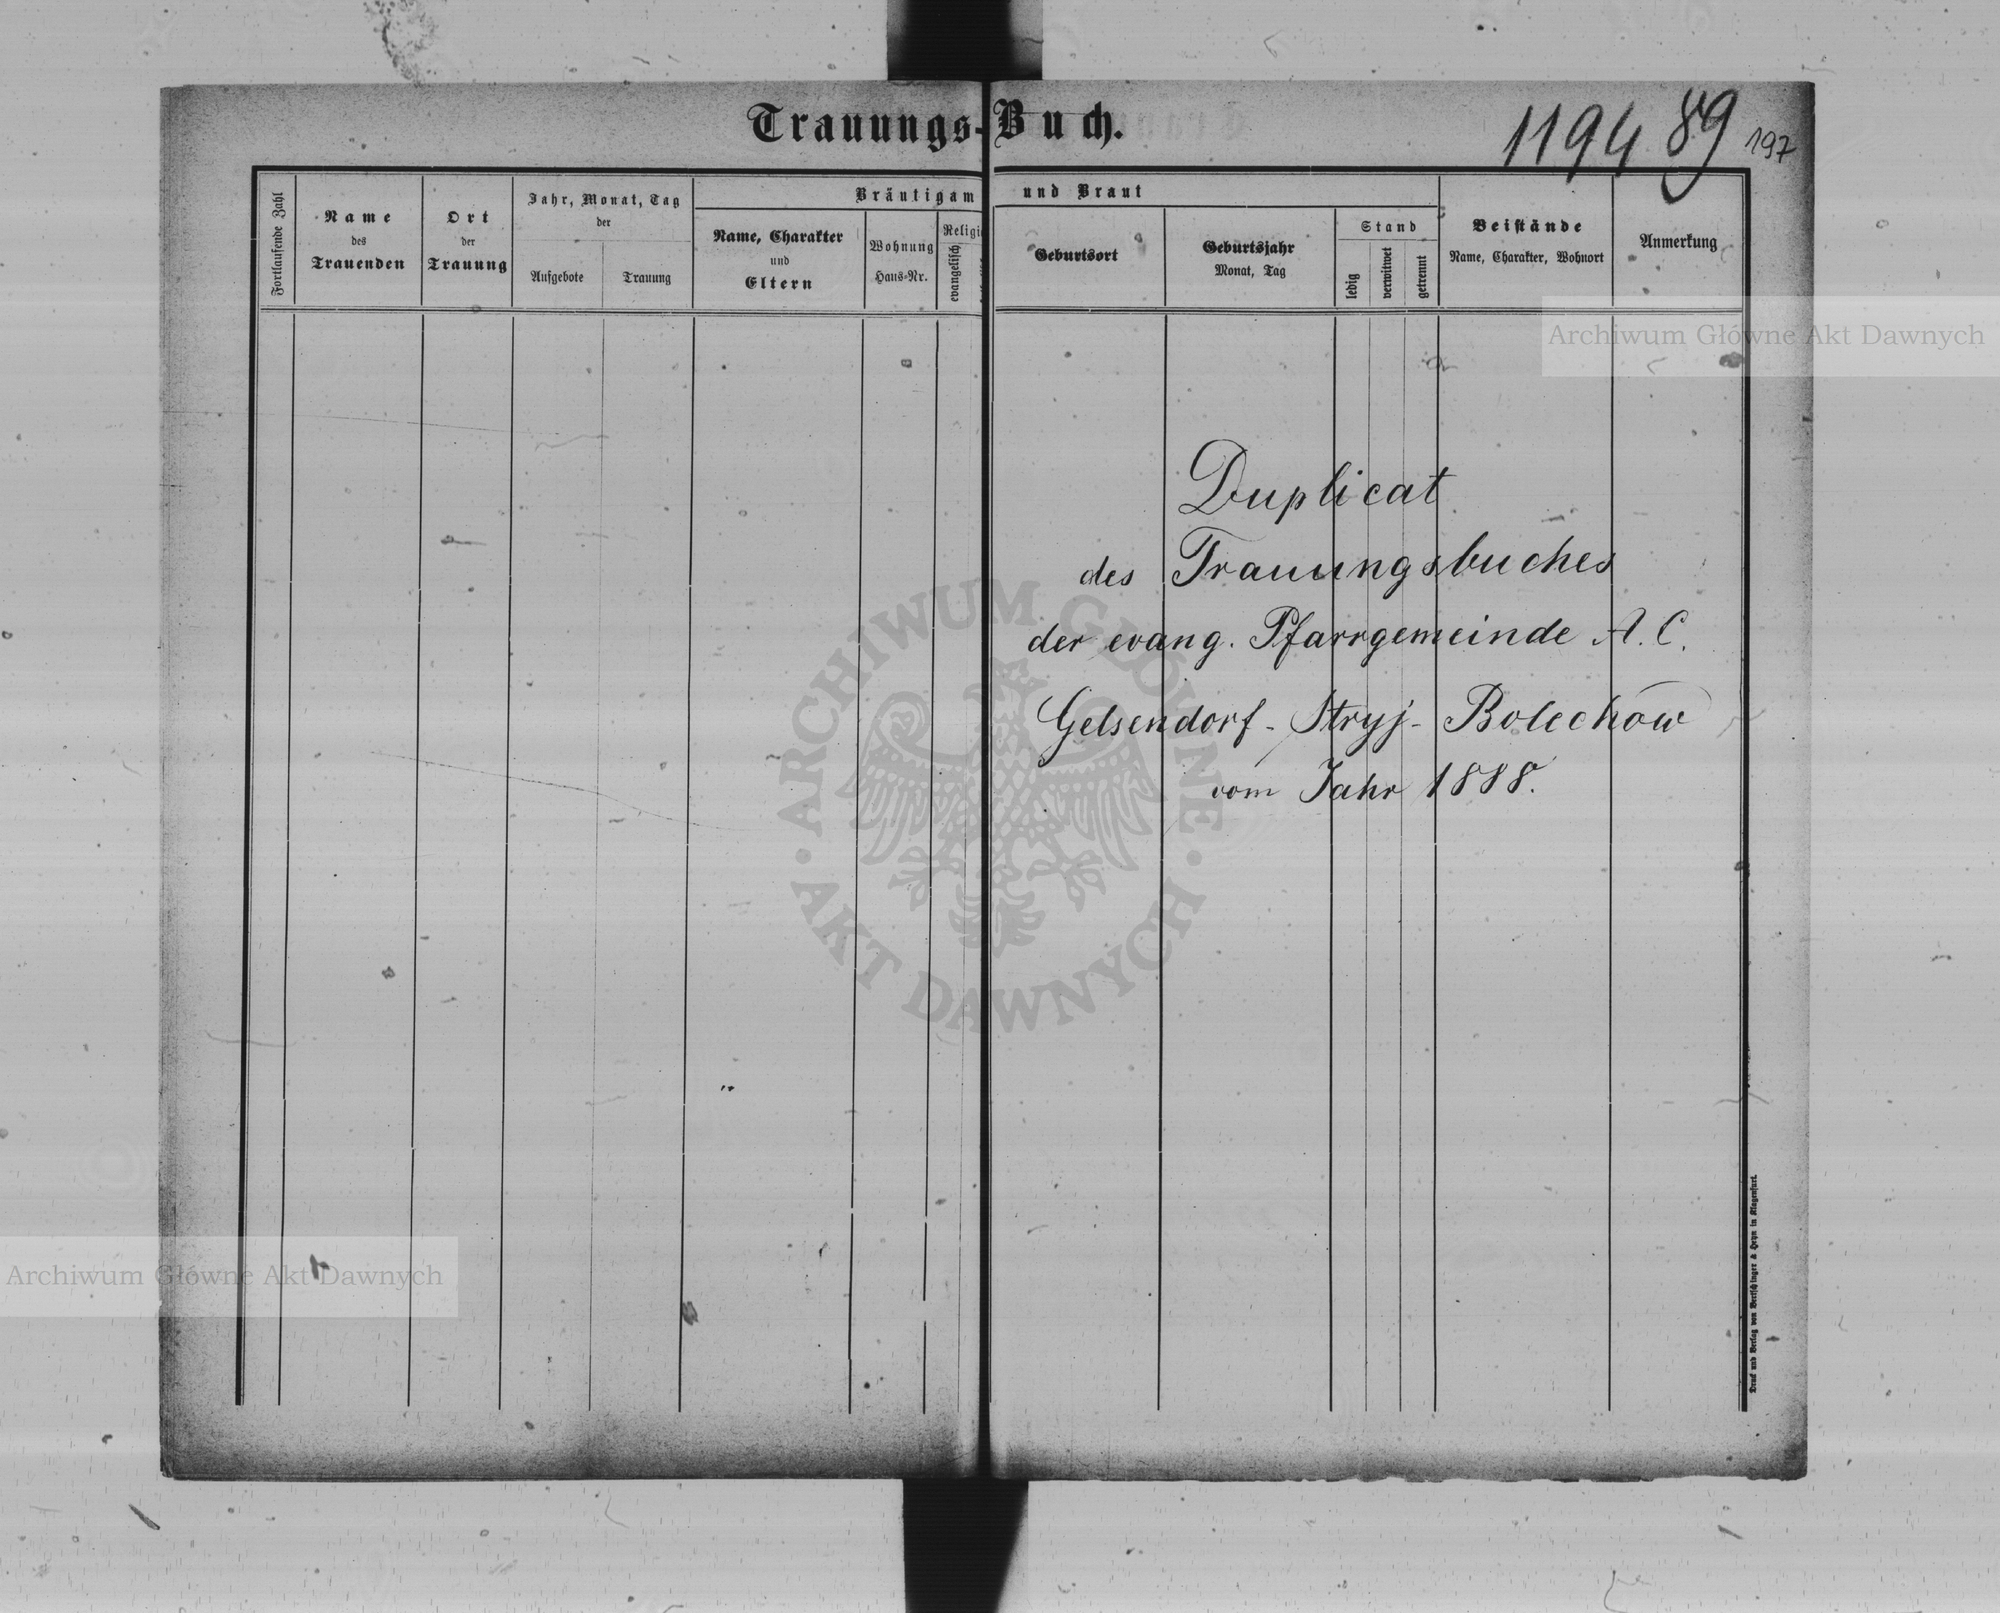 Trauungs-Buch.
1194 89 197
Fortlaufende Zahl
Name
des
Trauenden
Ort
der
Trauung
Jahr, Monat, Tag
der
Aufgebote
Trauung
Bräutigam und Braut
Name, Charakter
und
Eltern
Wohnung
Haus-Nr.
evangelisch
Geburtsort
Geburtsjahr
Monat, Tag
Stand
ledig
verwitwet
getrennt
Beistände
Name, Charakter, Wohnort
Anmerkung
Archiwum Główne Akt Dawnych
Duplicat
des Trauungsbuches
der evang. Pfarrgemeinde A. C.
Gelsendorf - Stryj - Bolechow
vom Jahr 1888.
ARCHIWUM GŁÓWNE
AKT DAWNYCH
Archiwum Główne Akt Dawnych
Druck und Verlag von Bertschinger & Heyn in Klagenfurt.